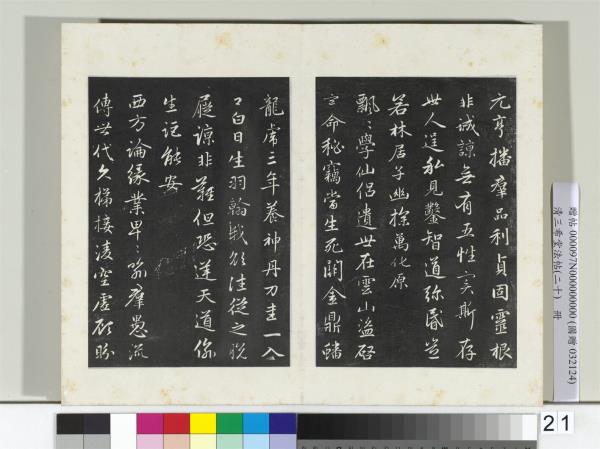 元亨播羣品利貞固靈根
非誠諒無有五性實斯存
世人逞私見鑿智道彌昏豈
若林居子幽探萬化原
飄〻學仙侶遺世在雲山盜啓
玄命秘竊當生死關金鼎蟠
龍虎三年養神丹刀圭一入
口白日生羽翰我欲往從之脫
屣諒非難但恐逆天道偷
生詎能安
西方論緣業卑〻喻羣愚流
傳世代久梯接凌空虛顧盼
贈帖 000097N000000000 (圖贈 032124)
清三希堂法帖(二十) 冊
21